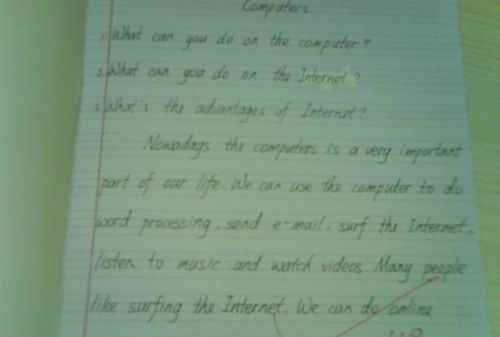 Computers
1. What can you do on the computer?
2. What can you do on the Internet?
3. What's the advantages of Internet?
Nowadays the computers is a very important
part of our life. We can use the computer to do
word processing, send e-mail, surf the Internet,
listen to music and watch videos. Many people
like surfing the Internet. We can do online